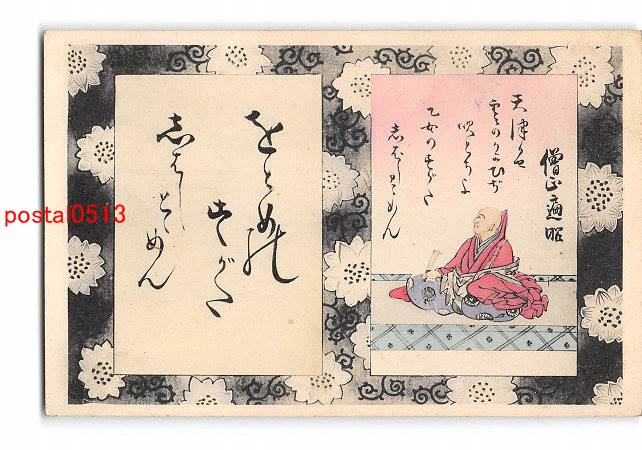 僧正遍昭
天津かせ
雲のかよひぢ
吹とちよ
乙女のすがた
しばしとゞめん
をとめの
すがた
しばしとゞめん
postal0513